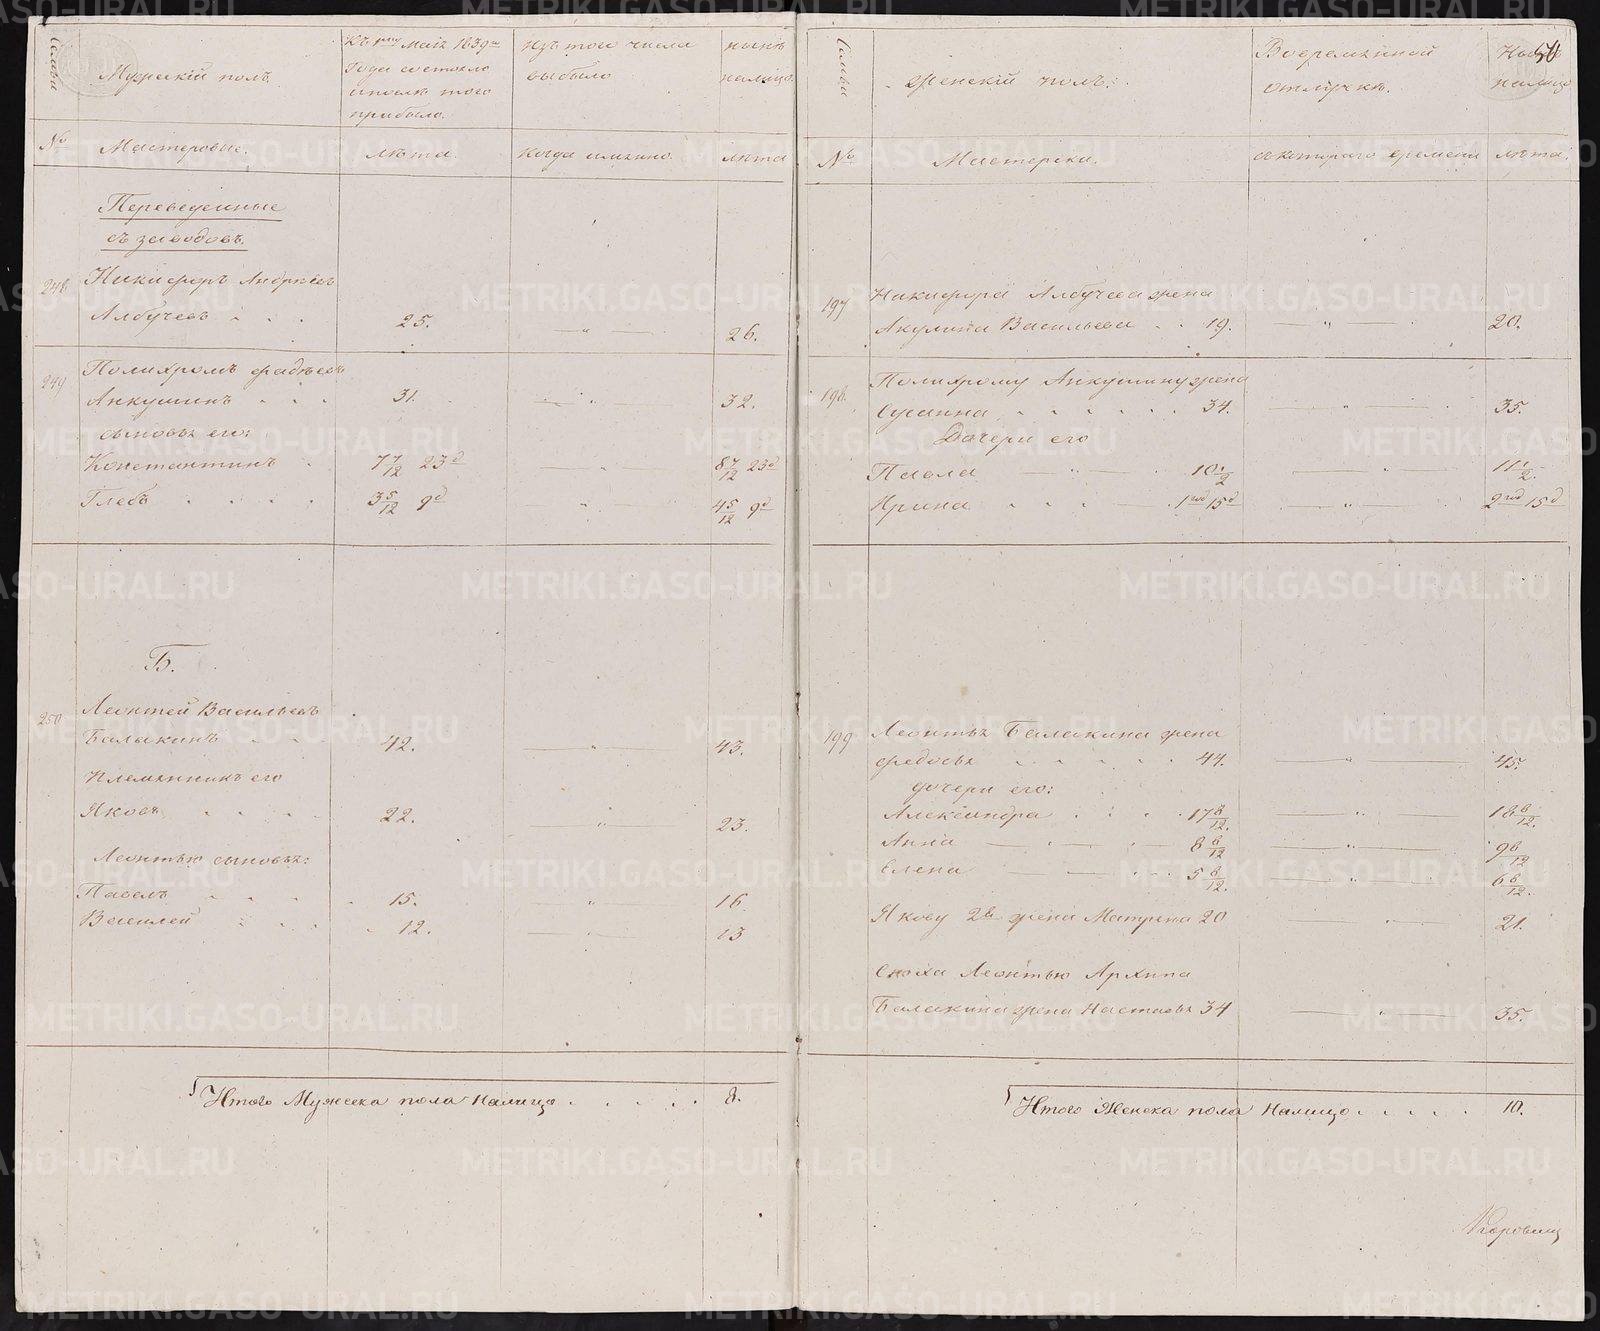 Семьи
Мужескій полъ.
Къ 1му Маія 1839го
Года состояло
и после того
прибыло.
Изъ того числа
выбыло
нынѣ
налицо.
№
Мастеровые.
лѣта.
Когда имянно.
лѣта
Переведенные
съ заводовъ.
248.
Никифоръ Андрѣевъ
Албучевъ . . . 25. 26.
249
Полихромъ Фадѣевъ
Анкушинъ . . . 31. 32.
сыновья его:
Константинъ . 7 7/12 23д 8 7/12 23д
Глебъ . . . . 3 5/12 9д 4 5/12 9д
Б.
250
Леонтей Васильевъ
Балакинъ . . 42. 43.
Племянникъ его
Яковъ . . . . 22. 23.
Леонтью сыновья:
Павелъ . . . . 15. 16
Василей . . . . 12. 13
Итого Мужеска пола налицо . . . . . . 8.
Семьи
Женскій полъ:
Во временной
отлучкѣ.
налицо
50
№
Мастерски.
съ котораго времени
лѣта.
197
Никифора Албучева жена
Акулина Васильева . . 19. 20.
198.
Полихрому Анкушину жена
Сусанна . . . . . . 34. 35.
Дочери его
Павла 10 1/2 11 1/2.
Ирина . . . . 1год 15д 2год 15д
199
Леонтья Балакина жена
Федосья . . . . . 44. 45.
дочери его:
Александра . . . . 17 8/12. 18 8/12.
Анна 8 8/12 9 8/12
Елена 5 8/12. 6 8/12.
Якову 2я жена Матрена 20 21.
Сноха Леонтью Архипа
Балакина жена Настасья 34 35.
Итого Женска пола налицо . . . . . 10.
METRIKI.GASO-URAL.RU